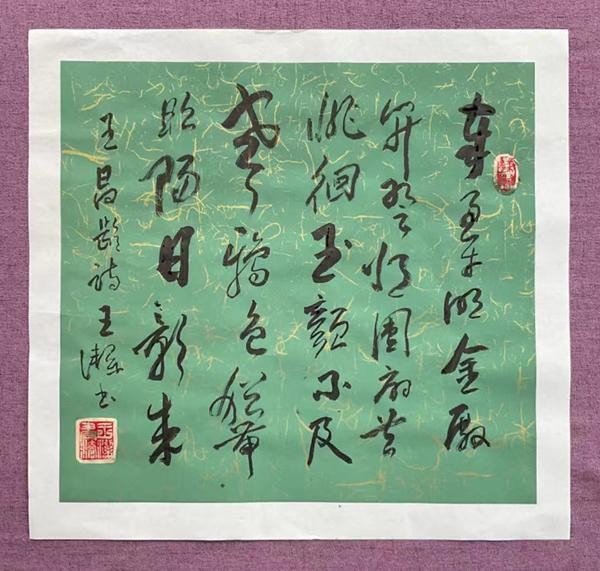 奉帚平明金殿
開暫將團扇共
徘徊玉顏不及
寒鴉色猶帶
昭陽日影來
王昌齡詩王書